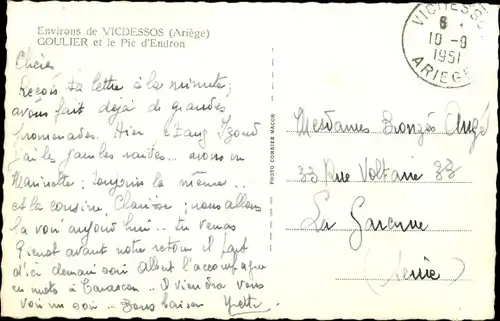 Environs de VICDESSOS (Ariège)
GOULIER et le Pic d'Endron
VICDESSOS
6 .
10 - 9
1951
ARIEGE
Chères
Reçois ta lettre à la minute;
avons fait déjà de grandes
promenades. Hier l'Étang Izourd
j'ai les jambes raides.. avons vu
Marinette; toujours la même..
et la cousine, Clarisse; nous allons
la voir aujourd'hui.. tu verras
Pierrot avant notre retour il part
d'ici demain soir allant l'accompagner
en moto à Tarascon.. Il viendra vous
voir un soir.. Bons baisers Yvette
PHOTO COMBIER MACON
Mesdames
33 Rue Voltaire 33
La Garenne
(Seine)